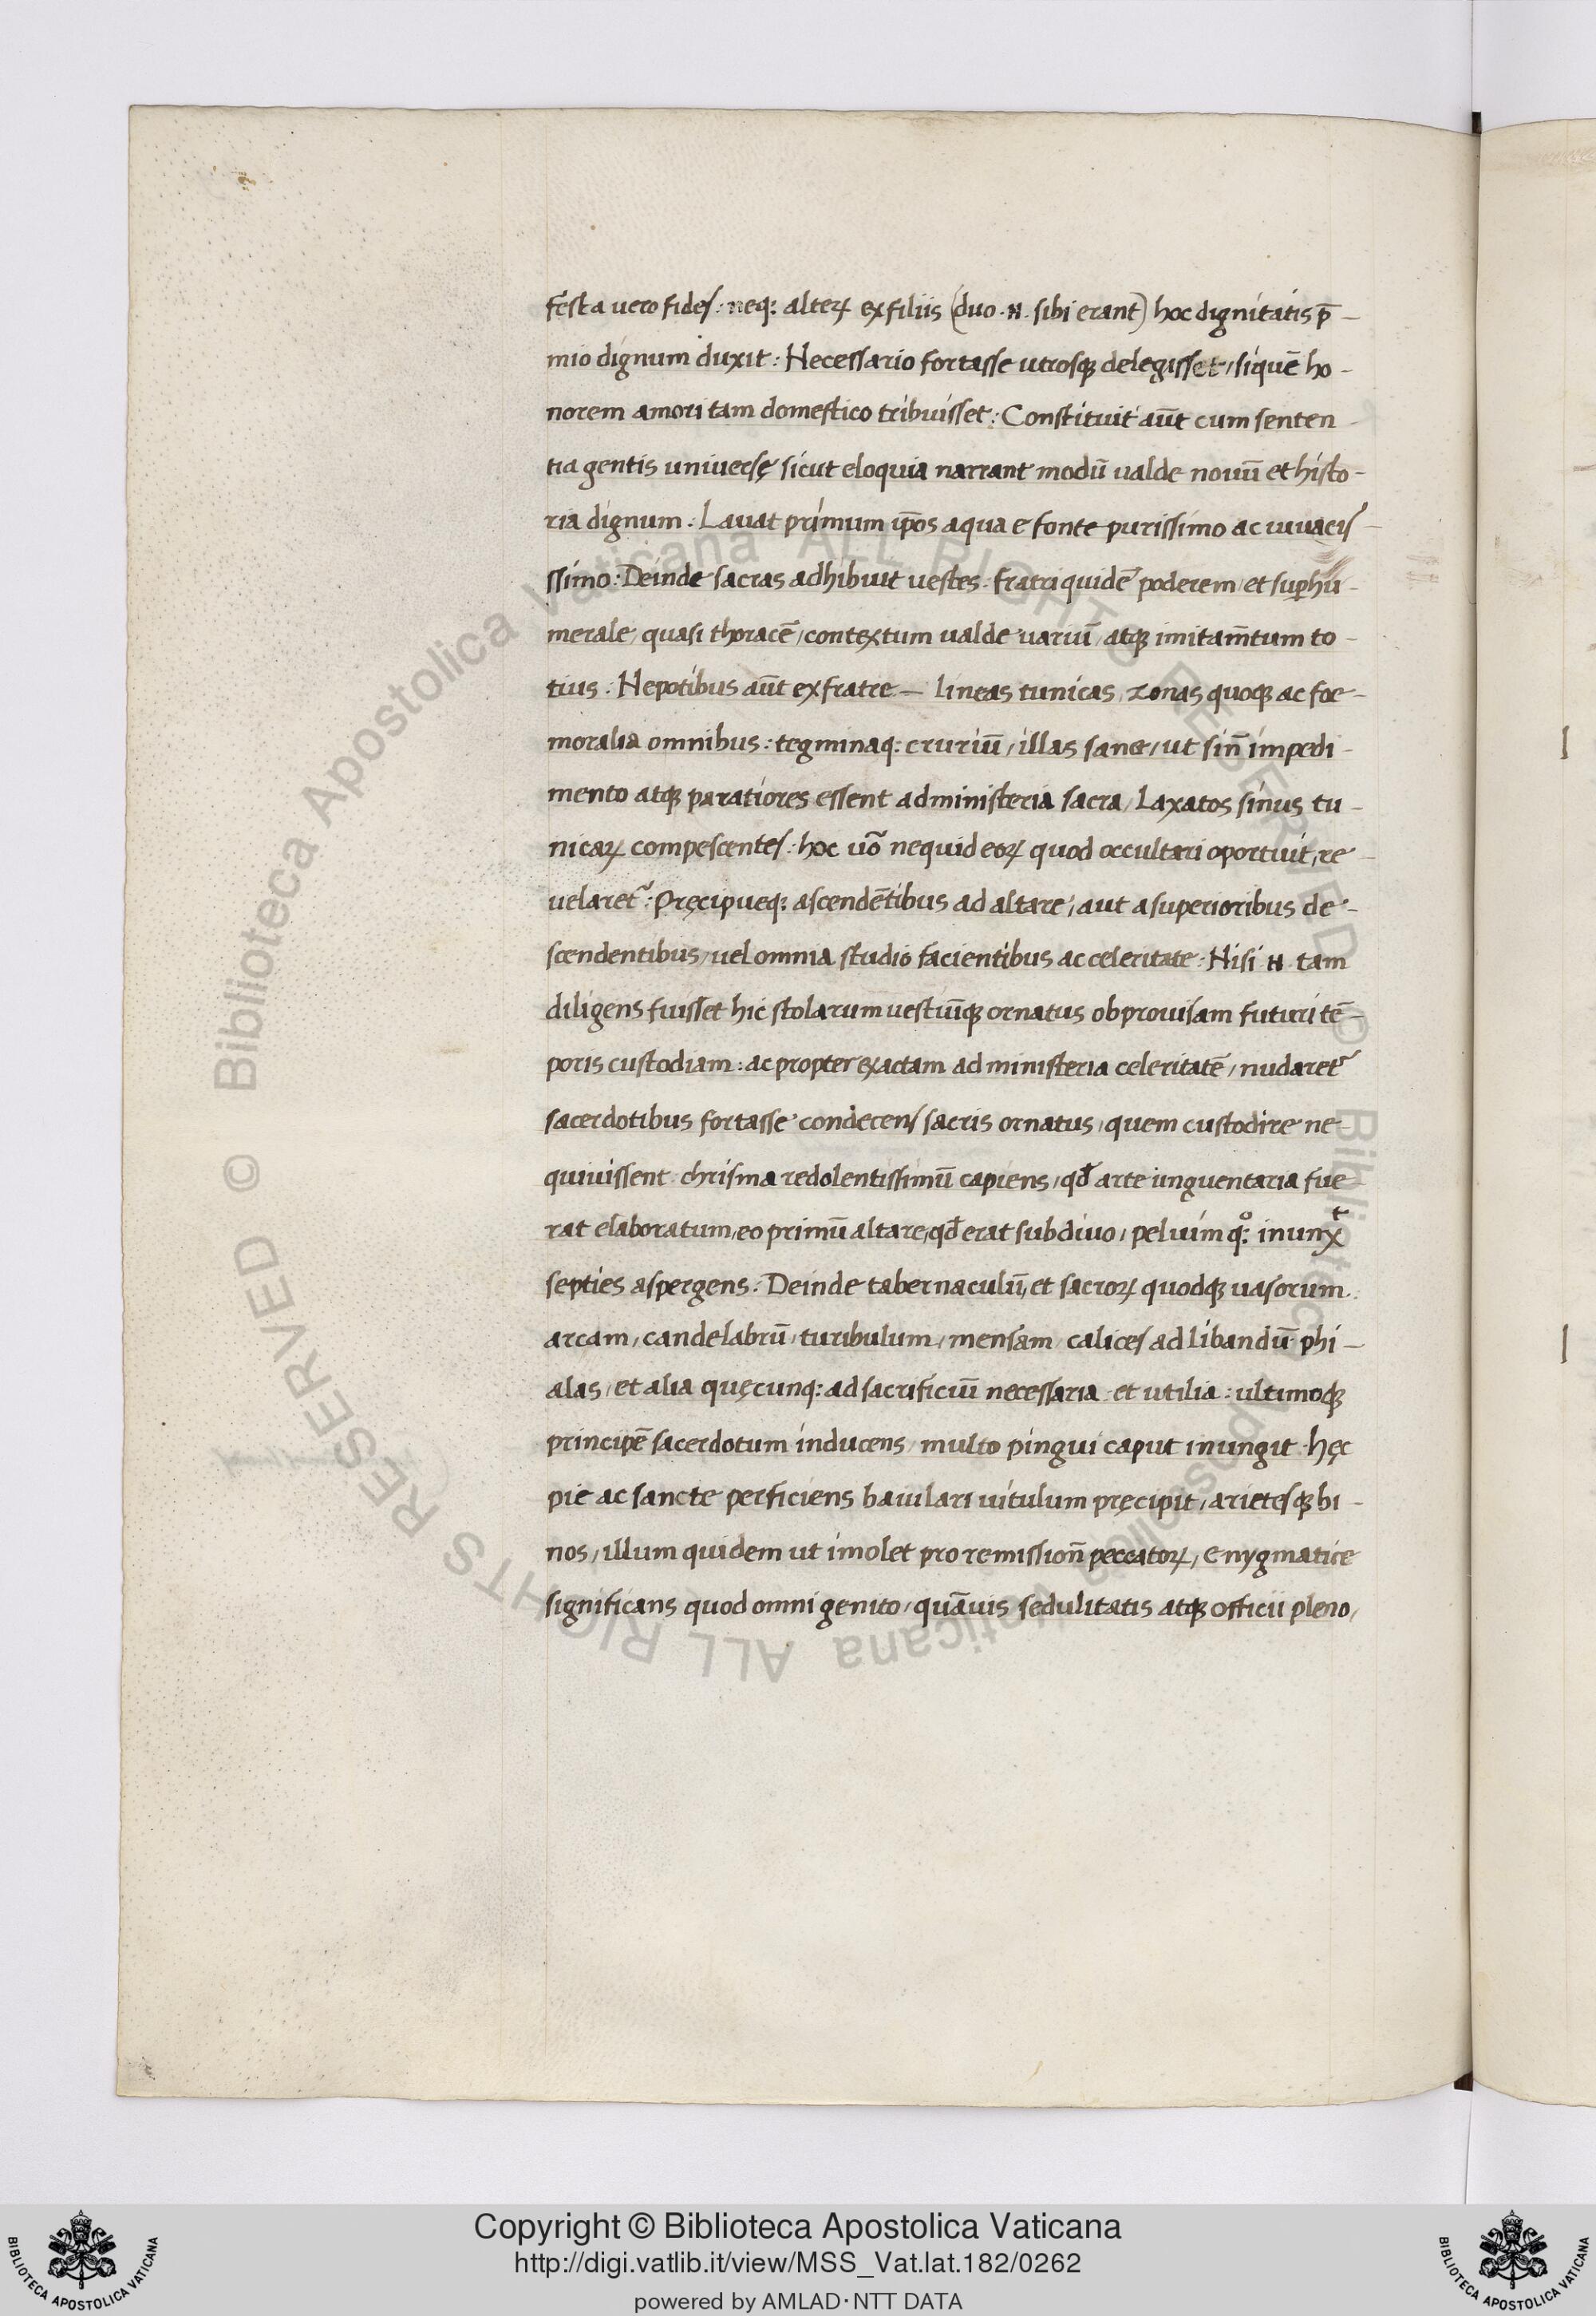 festa uero fides: neq: alterꝝ ex filiis (duo .N. sibi erant) hoc dignitatis p̄-
mio dignum duxit: Necessario fortasse utrosqꝫ delegisset, siquē ho-
norem amori tam domestico tribuisset: Constituit aūt cum senten
tia gentis uniuersę sicut eloquia narrant modū ualde nouū et histo-
ria dignum. Lauat primum ip̄os aqua e fonte purissimo ac uiuacis-
ssimo: Deinde sacras adhibuit uestes. fratri quidē poderem, et suꝑhu-
merale, quasi thoracē, contextum ualde uariū, atqꝫ imitam̄tum to-
tius. Nepotibus aūt ex fratre— lineas tunicas, zonas quoqꝫ ac foe-
moralia omnibus: tegminaq: cruriū, illas sane, ut sin̄ impedi-
mento atqꝫ paratiores essent ad ministeria sacra, Laxatos sinus tu-
nicaꝝ compescentes: hoc uō nequid eoꝝ quod occultari oportuit, re-
uelaret᷑: Pręcipueq: ascendētibus ad altare, aut a superioribus de-
scendentibus, uel omnia studio facientibus ac celeritate: Nisi .N. tam
diligens fuisset hic stolarum uestiūqꝫ ornatus ob prouisam futuri tē-
poris custodiam: ac propter exactam ad ministeria celeritatē, nudaret᷑
sacerdotibus fortasse condecens sacris ornatus, quem custodire ne-
quiuissent. chrisma redolentissimū capiens, qđ arte unguentaria fue
rat elaboratum, eo primū altare, qđ erat subdiuo, peluim qͦ: inunxᵗ
septies aspergens: Deinde tabernaculū, et sacroꝝ quodqꝫ uasorum.
arcam, candelabrū, turibulum, mensam, calices ad libandū phi-
alas, et alia quęcunq: ad sacrificiū necessaria et utilia: ultimoqꝫ
principē sacerdotum inducens, multo pingui caput inungit. hęc
pie ac sancte perficiens baiulari uitulum pręcipit, arietesqꝫ bi-
nos, illum quidem ut imolet pro remission̄ peccatoꝝ, enygmatice
significans quod omni genito, quāuis sedulitatis atqꝫ officii pleno,
© Biblioteca Apostolica Vaticana ALL RIGHTS RESERVED
© Biblioteca Apostolica Vaticana ALL RIGHTS RESERVED
Copyright © Biblioteca Apostolica Vaticana
http://digi.vatlib.it/view/MSS_Vat.lat.182/0262
powered by AMLAD·NTT DATA
BIBLIOTECA APOSTOLICA VATICANA
BIBLIOTECA APOSTOLICA VATICANA